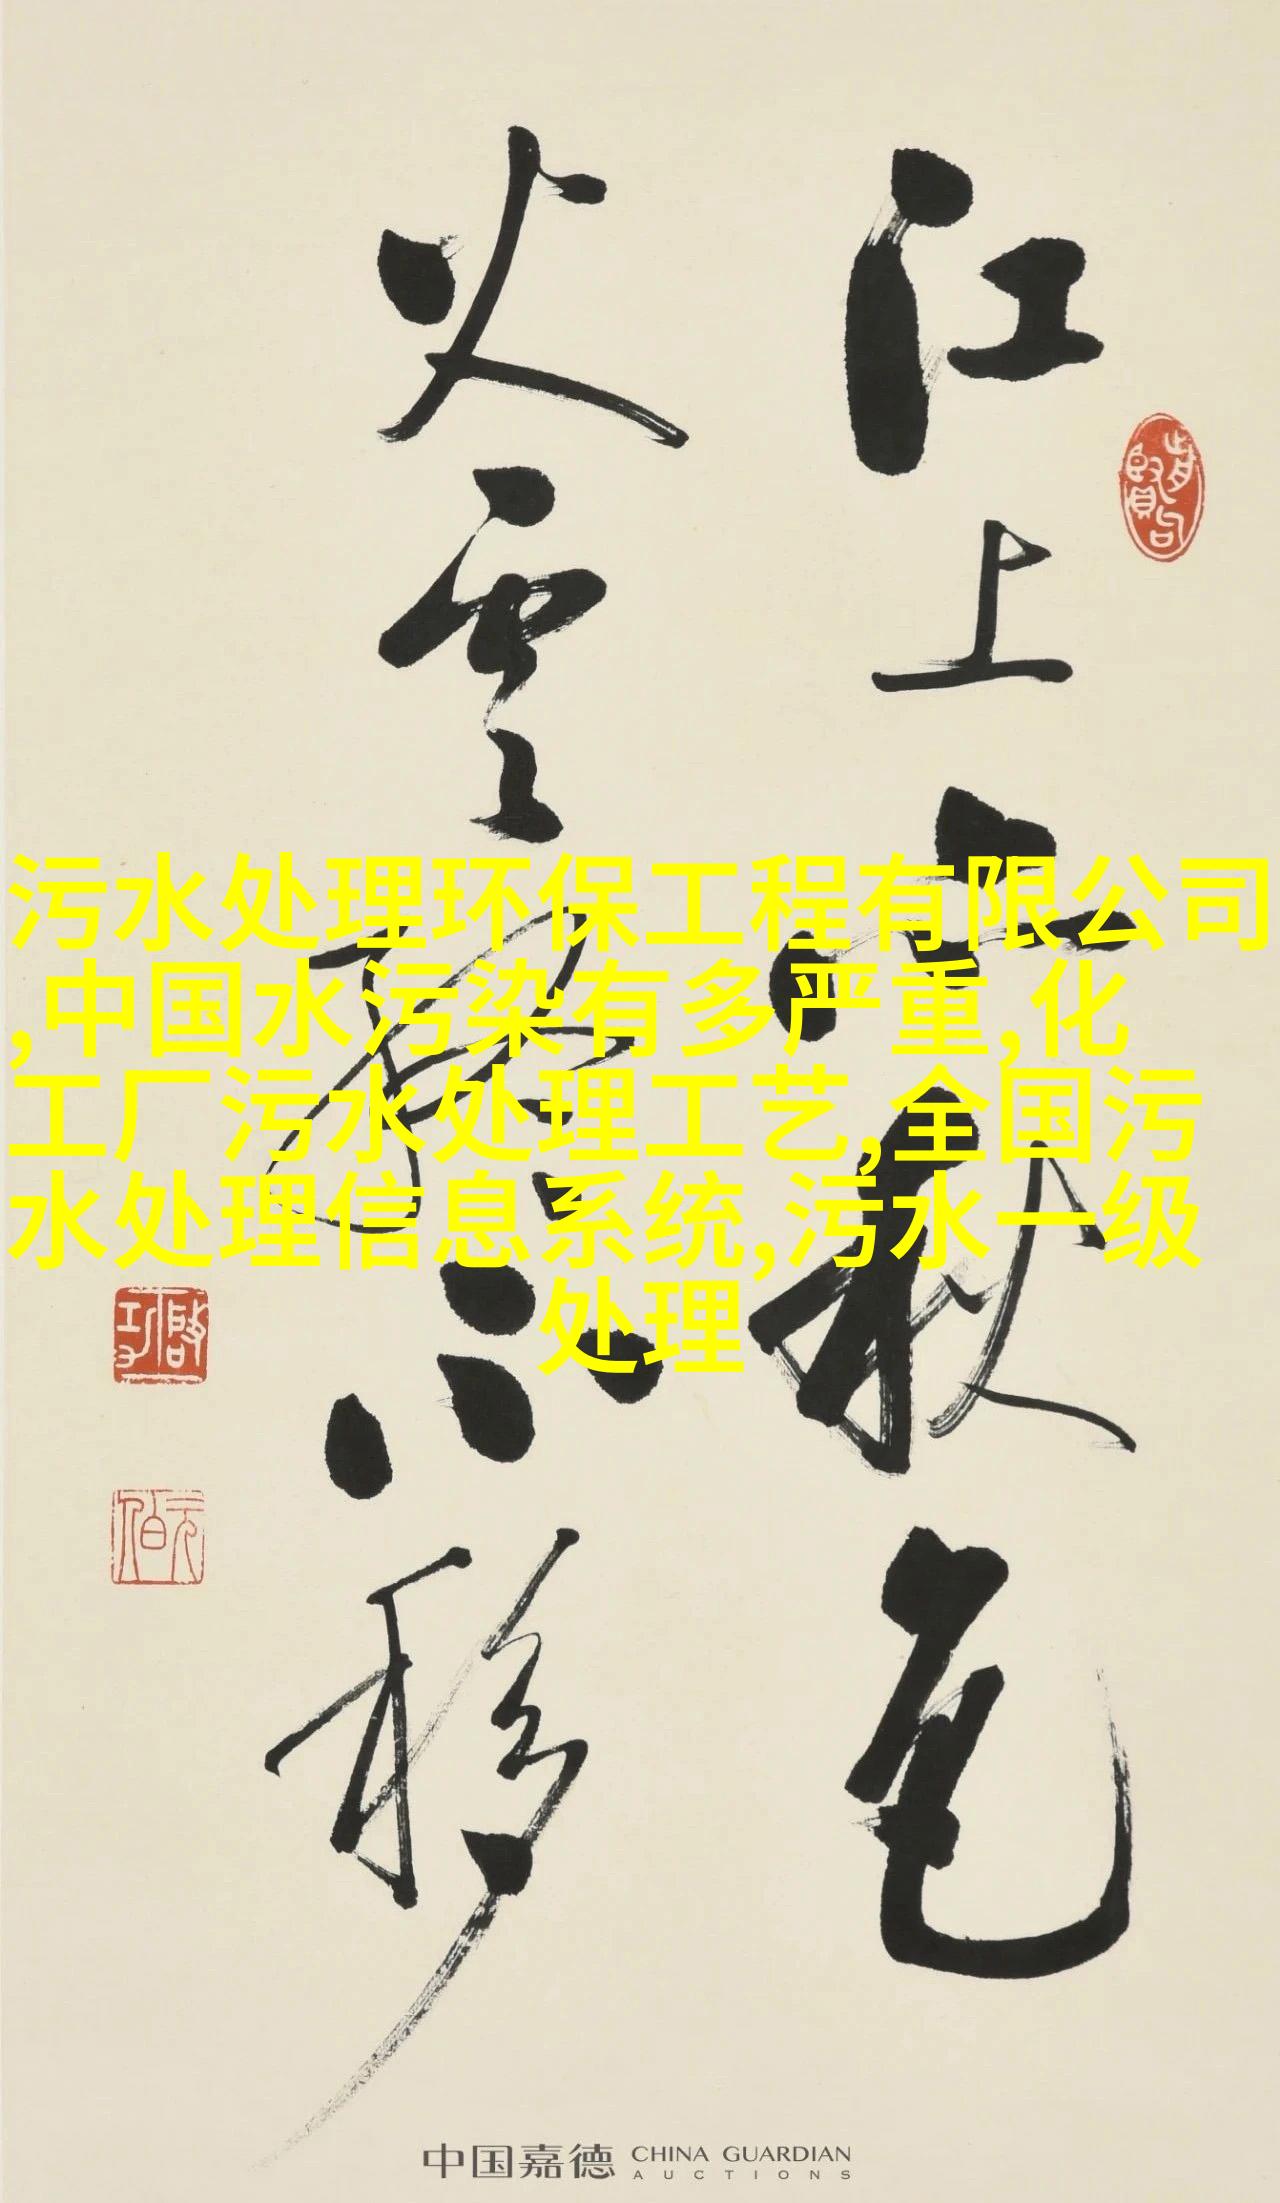 江上亦秋色
火雲終不移
啟功
元白
污水处理环保工程有限公司
,中国水污染有多严重,化
工厂污水处理工艺,全国污
水处理信息系统,污水一级
处理
中国嘉德 CHINA GUARDIAN
AUCTIONS